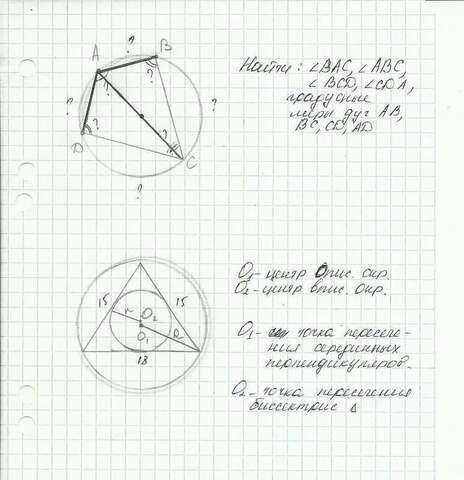 ?
A
B
?
?
?
?
?
?
D
C
?
Найти: ∠BAC, ∠ABC,
∠BCD, ∠CDA,
градусные
меры дуг AB,
BC, CD, AD
15
15
r
O₂
O₁
R
18
O₁ - центр Опис. окр.
O₂ - центр впис. окр.
O₁ - точка пересече-
ния серединных
перпендикуляров.
O₂ - точка пересечения
биссектрис Δ